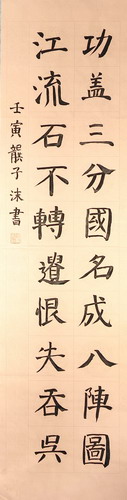 功盖三分國名成八陣圖
江流石不轉遺恨失吞吳
壬寅龍子沫書